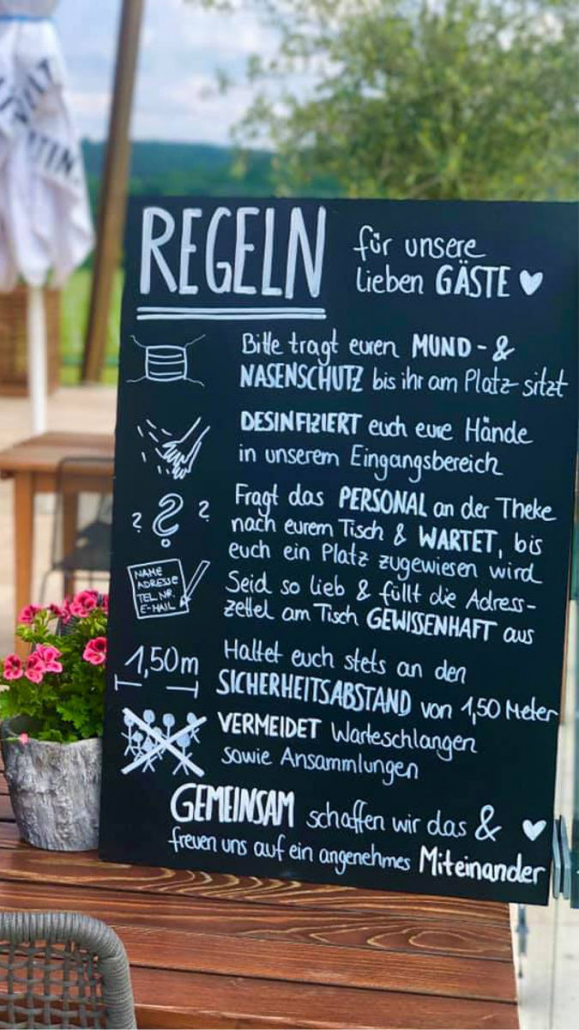 REGELN für unsere
lieben GÄSTE
Bitte tragt euren MUND- &
NASENSCHUTZ bis ihr am Platz sitzt
DESINFIZIERT euch eure Hände
in unserem Eingangsbereich
? ? ?
Fragt das PERSONAL an der Theke
nach eurem Tisch & WARTET, bis
euch ein Platz zugewiesen wird
NAME
ADRESSE
TEL NR.
E-MAIL
Seid so lieb & füllt die Adress-
zettel am Tisch GEWISSENHAFT aus
1,50m
Haltet euch stets an den
SICHERHEITSABSTAND von 1,50 Meter
VERMEIDET Warteschlangen
sowie Ansammlungen
GEMEINSAM schaffen wir das &
freuen uns auf ein angenehmes Miteinander